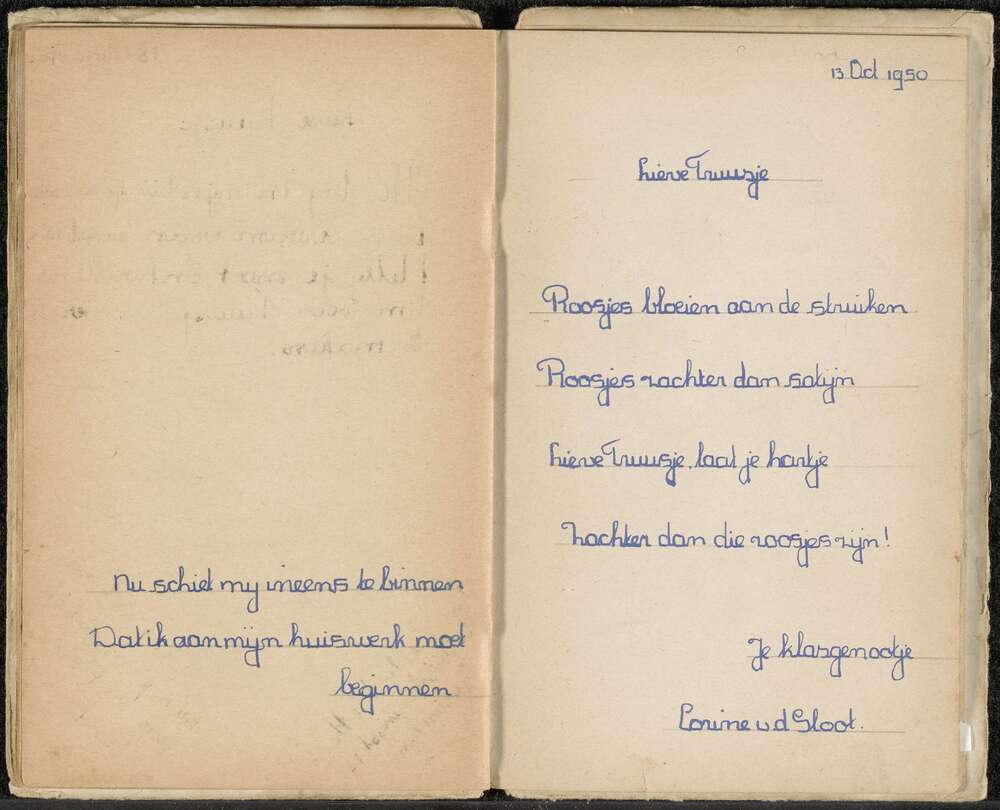 Nu schiet my ineens te binnen
Dat ik aan mijn huiswerk moet
beginnen
13 Oct 1950
Lieve Truusje
Roosjes bloeien aan de struiken
Roosjes zachter dan satijn
Lieve Truusje, laat je hartje
Zachter dan die roosjes zijn!
Je klasgenootje
Corine v d Sloot.